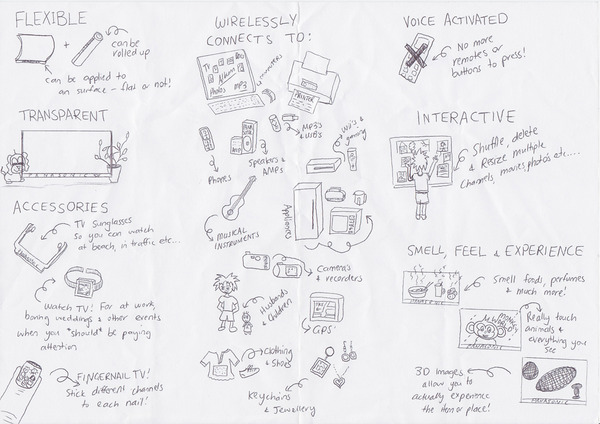 FLEXIBLE
+
can be
rolled up
can be applied to
an surface - flat or not!
TRANSPARENT
ACCESSORIES
TV Sunglasses
so you can watch
at beach, in traffic etc...
Watch TV! For at work,
boring weddings & other events
when you *should* be paying
attention
FINGERNAIL TV!
Stick different channels
to each nail!
WIRELESSLY
CONNECTS TO:
TV
Albums
Photos MP3
Computers
PRINTER
MP3's
& USB's
Wii's &
gaming
Phones
Speakers &
AMPs
MUSICAL
INSTRUMENTS
Appliances
Camera's &
recorders
Husbands
& Children
GPS'
Clothing &
Shoes
Keychains
& Jewellery
VOICE ACTIVATED
No more
remotes or
buttons to press!
INTERACTIVE
Shuffle, delete
& Resize multiple
Channels, movies, photo's etc....
SMELL, FEEL & EXPERIENCE
Smell foods, perfumes
& much more!
PANASONIC
Really touch
animals &
everything you
see
PANASONIC
3D Images
allow you to
actually experience
the item or place!
PANASONIC